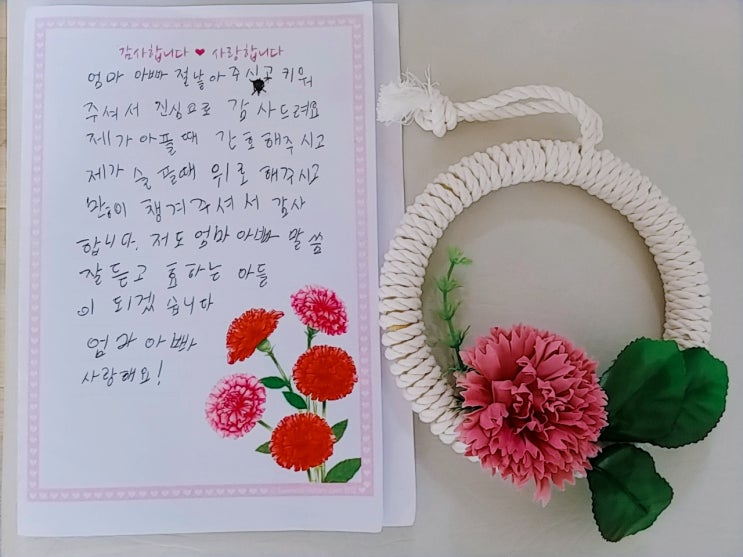 감사합니다 ♥ 사랑합니다
엄마 아빠 절 낳아 주시고 키워
주셔서 진심으로 감사드려요
제가 아플때 간호해주시고
제가 슬플때 위로해주시고
많이 챙겨주셔서 감사
합니다. 저도 엄마아빠 말씀
잘 듣고 효하는 아들
이 되겠습니다
엄마 아빠
사랑해요!